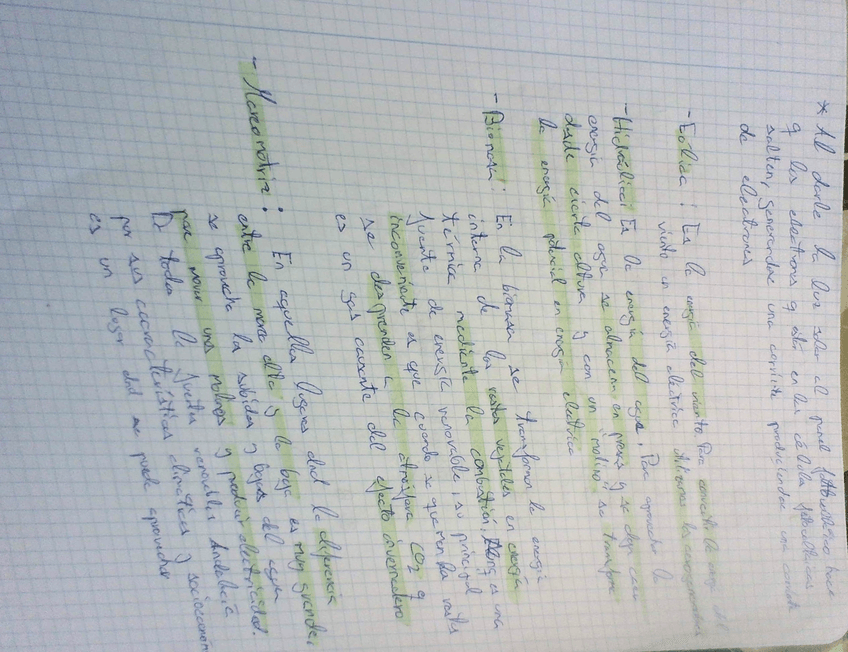 * Al darle la luz solar al panel fotovoltaico hace
q los electrones q están en las células fotovoltaicas
salten, generandose una corriente produciendose una corriente
de electrones
- Eólica: Es la energía del viento. Para convertir la energía del
viento en energía electrica utilizamos los aerogeneradores
- Hidráulica: Es la energía del agua. Para aprovechar la
energía del agua se almacena en presas y se deja caer
desde cierta altura y con un molino se transforma
la energía potencial en energía electrica
- Biomasa: En la biomasa se transforma la energía
interna de los restos vegetales en energía
térmica mediante la combustión, es una
fuente de energía renovable, su principal
inconveniente es que cuando se queman los restos
se desprenden a la atmósfera CO2 q
es un gas causante del efecto invernadero
- Mareomotriz: En aquellos lugares dond la diferencia
entre la marea alta y la baja es muy grande,
se aprovecha las subidas y bajas del agua
para mover unos motores y producir electricidad.
D todas las fuentes renovables Andalucía
por sus características climáticas y socioeconóm
es un lugar dond se puede aprovechar